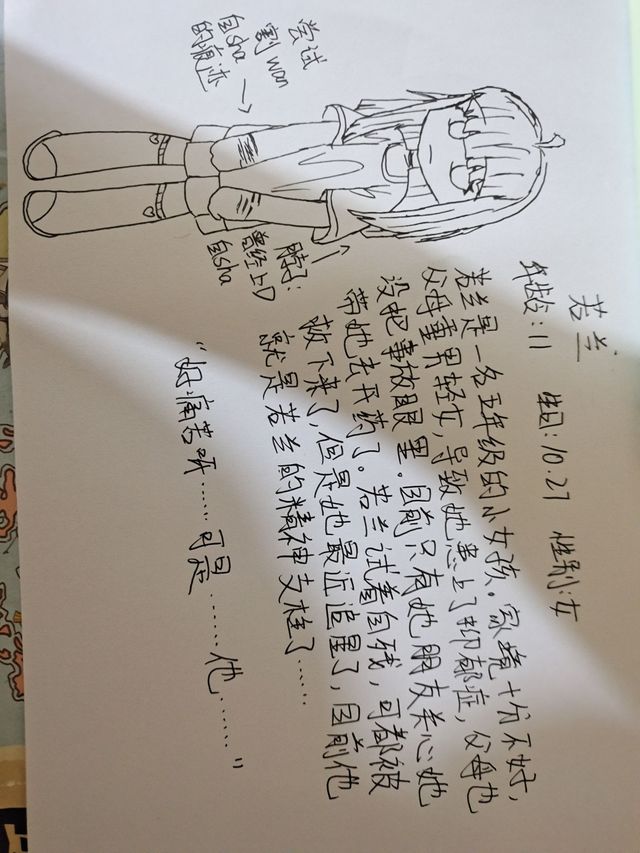 若兰
年龄：11 生日：10.27 性别：女
若兰是一名五年级的小女孩。家境十分不好，
父母重男轻女，导致她患上了抑郁症，父母也
没把事放眼里。目前只有她朋友关心她
带她去开药了。若兰试着自残，可都被
救下来了，但是她最近追星了，目前他
就是若兰的精神支柱了……
“好痛苦呀……可是……他……”
尝试
割wan
自sha
的痕迹
脖子：
曾经上D
自sha